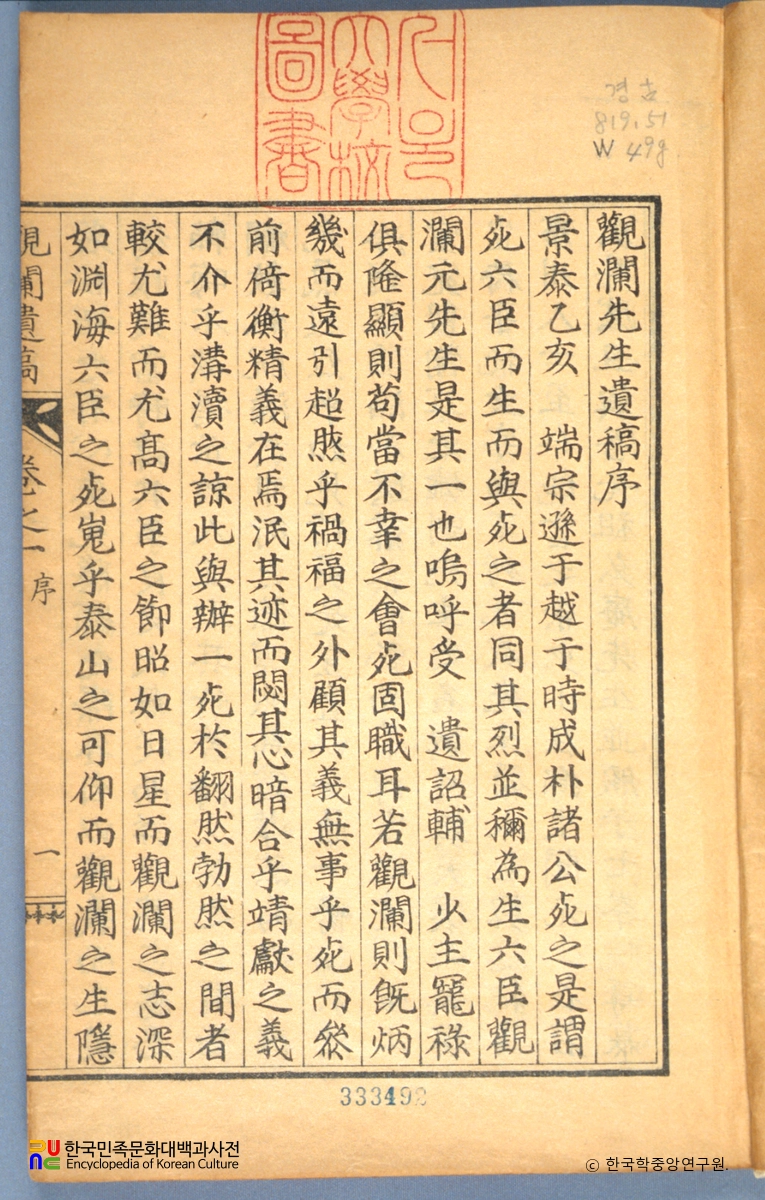 觀瀾先生遺稿序
景泰乙亥 端宗遜于越于時成朴諸公死之是謂
死六臣而生而與死之者同其烈並稱為生六臣觀
瀾元先生是其一也嗚呼受 遺詔輔 少主寵祿
俱隆顯則苟當不幸之會死固職耳若觀瀾則旣炳
幾而遠引超然乎禍福之外顧其義無事乎死而終
前倚衡精義在焉泯其迹而閟其心暗合乎靖獻之義
不介乎溝瀆之諒此與辦一死於翻然勃然之間者
較尤難而尤高六臣之節昭如日星而觀瀾之志深
如淵海六臣之死嵬乎泰山之可仰而觀瀾之生隱
觀瀾遺稿
卷之一
序
一
大學校
圖書
경古
819.51
W 49g
333492
한국민족문화대백과사전
Encyclopedia of Korean Culture
© 한국학중앙연구원.